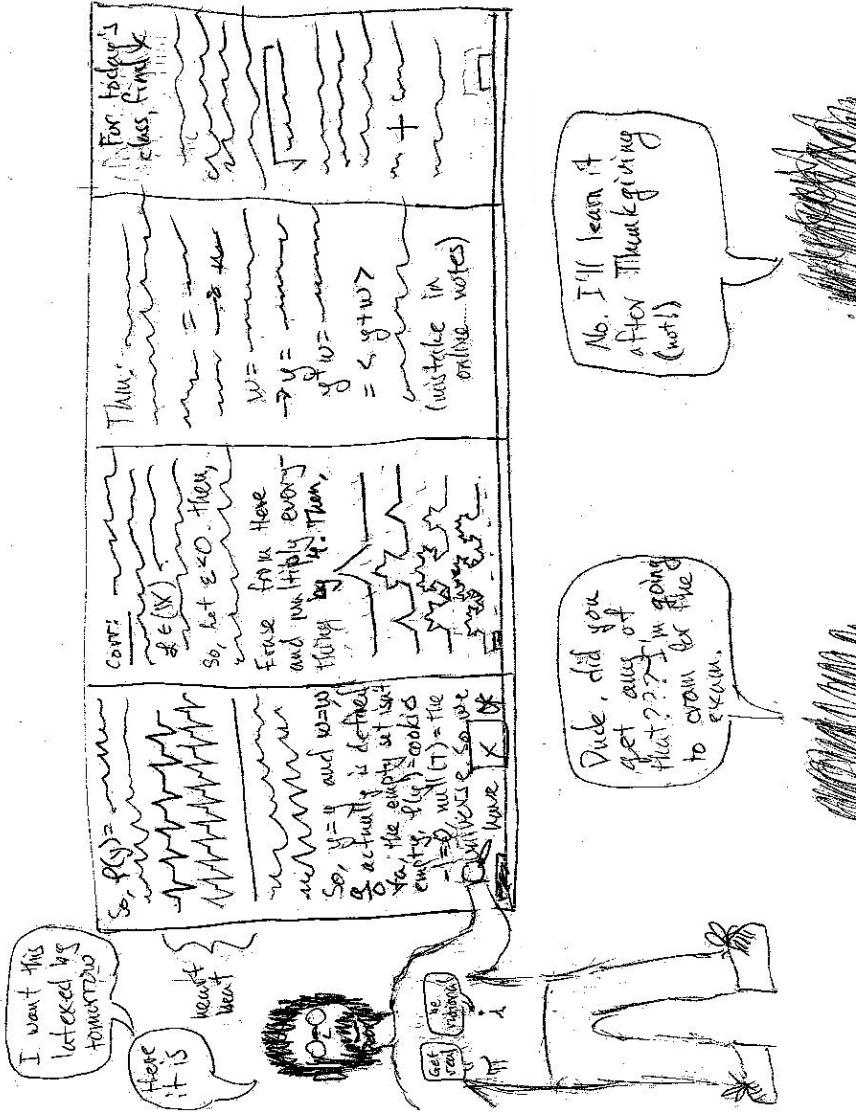 I want this
latexed by
tomorrow
Here
it is
heart
beat
Get
real
be
rational
π
i
So, f(y)=
So, y=y and w=w
actually is defined
the empty set isn't
empty, f(y)=cookies
null(T)=the
universe. So we
have
X
OK
Corr:
So, let ε<0. then,
Erase from Here
and multiply every-
thing by 4. Then,
Thm:
=
w=
→ y=
y+w=
= <y+w>
(mistake in
online notes)
For today's
class, find k
+
Dude, did you
get any of
that??? I'm going
to cram for the
exam.
No. I'll learn it
after Thankgiving
(not!)